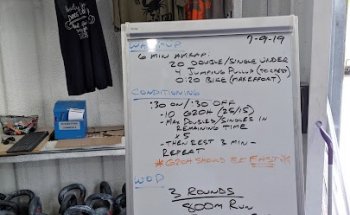 7-9-19
WARMUP
6 MIN AMRAP
20 DOUBLE/SINGLE UNDER
4 JUMPING PULLUP (TO CHEST)
0:20 BIKE (MAX EFFORT)
CONDITIONING
:30 ON/:30 OFF
-10 G2OH (25/15)
-MAX DOUBLES/SINGLES IN
REMAINING TIME
x5
-THEN REST 3 MIN-
REPEAT
*G2OH SHOULD BE EASY*
WOD
3 ROUNDS
800M RUN